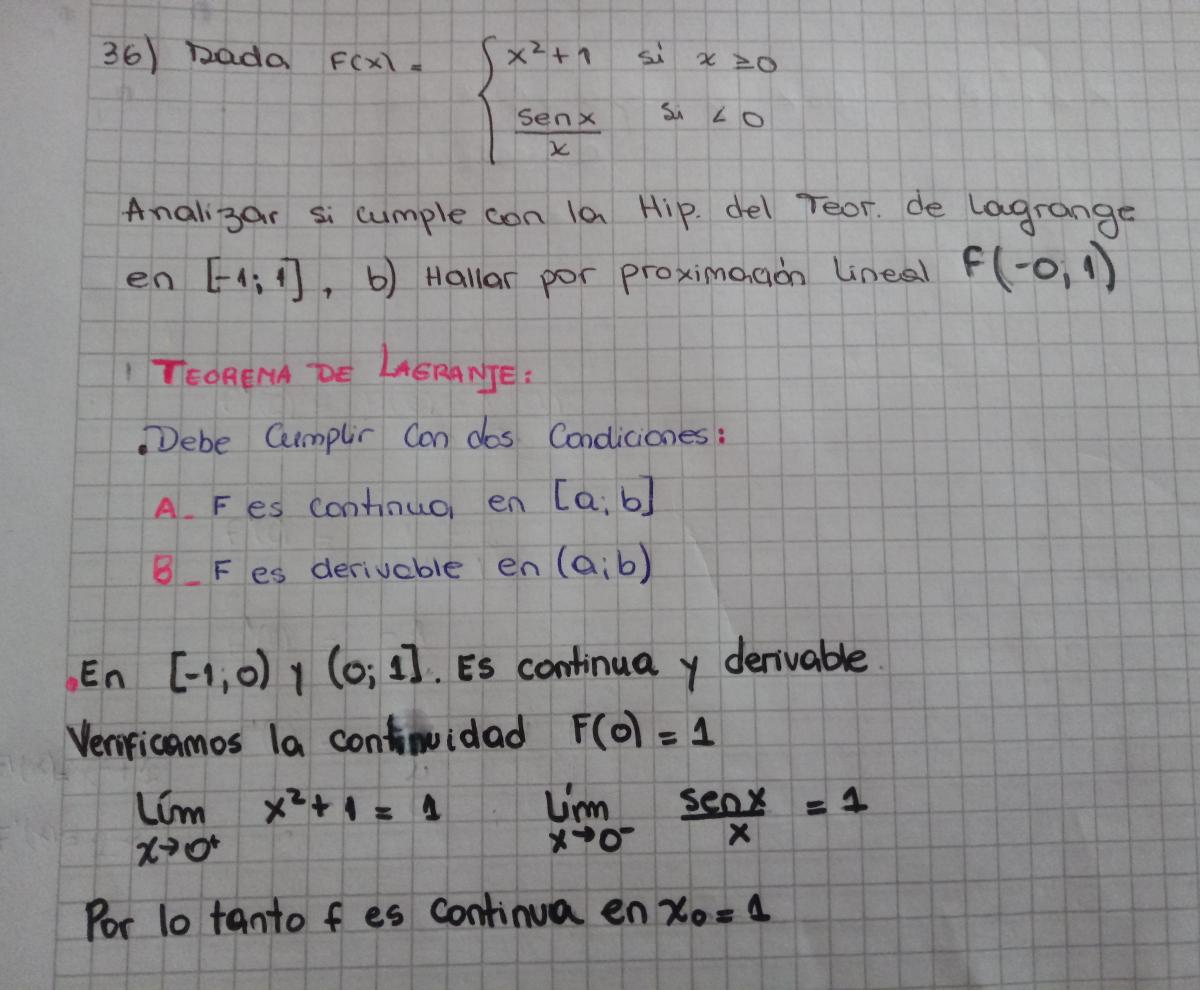 36) Dada F(x) = { x² + 1 si x ≥ 0
senx/x si < 0
Analizar si cumple con la Hip. del Teor. de Lagrange
en [-1; 1], b) Hallar por proximación lineal F(-0; 1)
TEOREMA DE LAGRANJE:
. Debe Cumplir Con dos Condiciones:
A_ F es continua en [a; b]
B_ F es derivable en (a; b)
. En [-1; 0) y (0; 1]. Es continua y derivable.
Verificamos la continuidad F(0) = 1
Lím x→0⁺ x² + 1 = 1 Lím x→0⁻ senx/x = 1
Por lo tanto f es continua en x₀ = 1